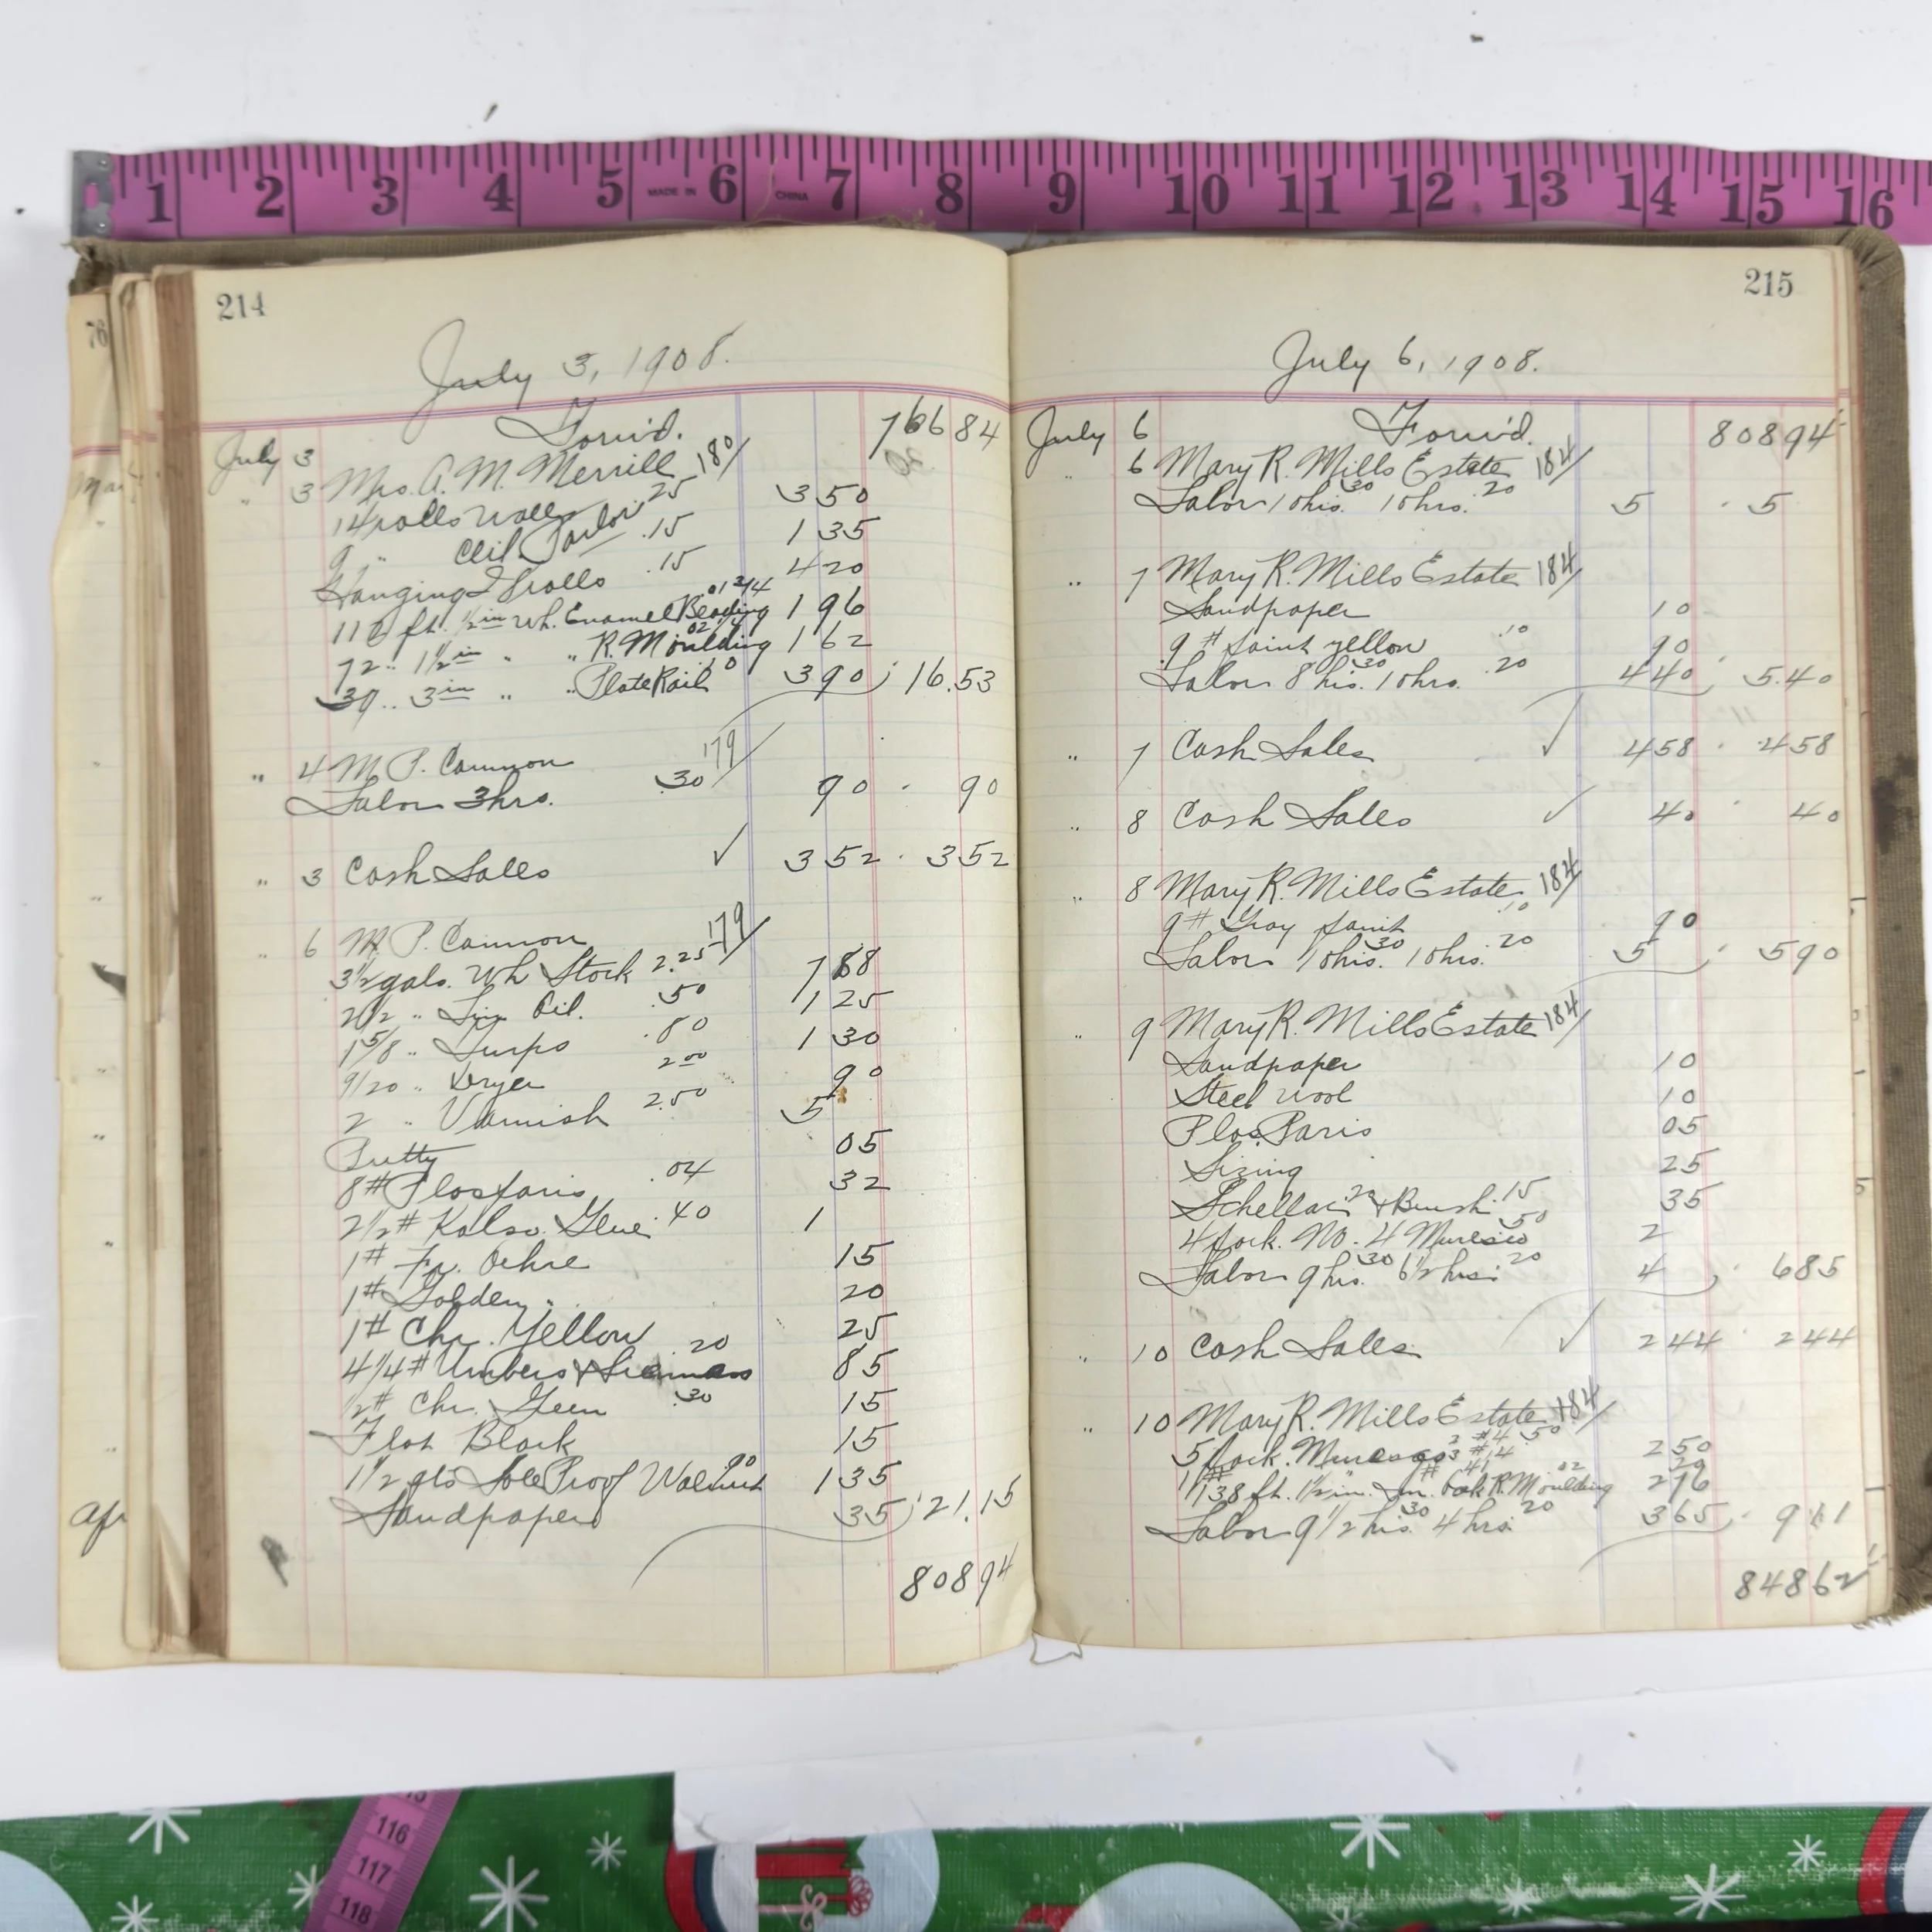 1 2 3 4 5 MADE IN 6 CHINA 7 8 9 10 11 12 13 14 15 16
76
214
July 3, 1908.
July 3 Forw'd. 766 84
" 3 Mrs. A. M. Merrill 180
14 rolls wall .25 3 50
9 " Ceil. Parlor .15 1 35
Hanging rolls .15 4 20
112 ft. 1/2 in Wh. Enamel Beading .01 3/4 1 96
72 " 1 1/2 in " " R. Moulding .02 1/4 1 62
39 " 3 in " " Plate Rail 10 3 90 16.53
" 4 M. P. Cannon 179
Labor 3 hrs. .30 90 90
" 3 Cash Sales ✓ 3 52 3 52
" 6 M. P. Cannon 179
3 1/2 gals. Wh Stock 2.25 7 88
2 1/2 " Lin Oil. .50 1 25
1 5/8 " Turps .80 1 30
9/20 " Dryer 2 00 90
2 " Varnish 2.50 5
Putty 05
8 # Plas Paris .04 32
2 1/2 # Kalso. Glue .40 1
1 # Fr. Ochre 15
1 # Golden " 20
1 # Chr. Yellow 25
4 1/4 # Umbers & Siennas 20 85
1/2 # Chr. Green .30 15
Flat Black 15
1 1/2 qts Sole Proof Walnut 90 1 35
Sandpaper 35 21.15
808 94
Mar
Apr
215
July 6, 1908.
July 6 Forw'd. 808 94
" 6 Mary R. Mills Estate 184
Labor 10 hrs. 30 10 hrs. 20 5 5
" 7 Mary R. Mills Estate 184
Sandpaper 10
9 # paint yellow .10 90
Labor 8 hrs. 30 10 hrs. 20 4 40 5.40
" 7 Cash Sales ✓ 4 58 4 58
" 8 Cash Sales ✓ 40 40
" 8 Mary R. Mills Estate 184
9 # Gray paint .10 90
Labor 10 hrs. 30 10 hrs. 20 5 5 90
" 9 Mary R. Mills Estate 184
Sandpaper 10
Steel wool 10
Plas. Paris 05
Sizing 25
Schellac 20 & Brush .15 35
4 pack. No. 4 Muresco 50 2
Labor 9 hrs. 30 6 1/2 hrs. 20 4 6 85
" 10 Cash Sales ✓ 2 44 2 44
" 10 Mary R. Mills Estate 184
5 pack. Muresco 2 #4 3 #14 .50 2 50
138 ft. 1 1/2 in. Oak R. Moulding 02 2 76
Labor 9 1/2 hrs. 30 4 hrs. 20 3 65 9 11
848 62
115
116
117
118